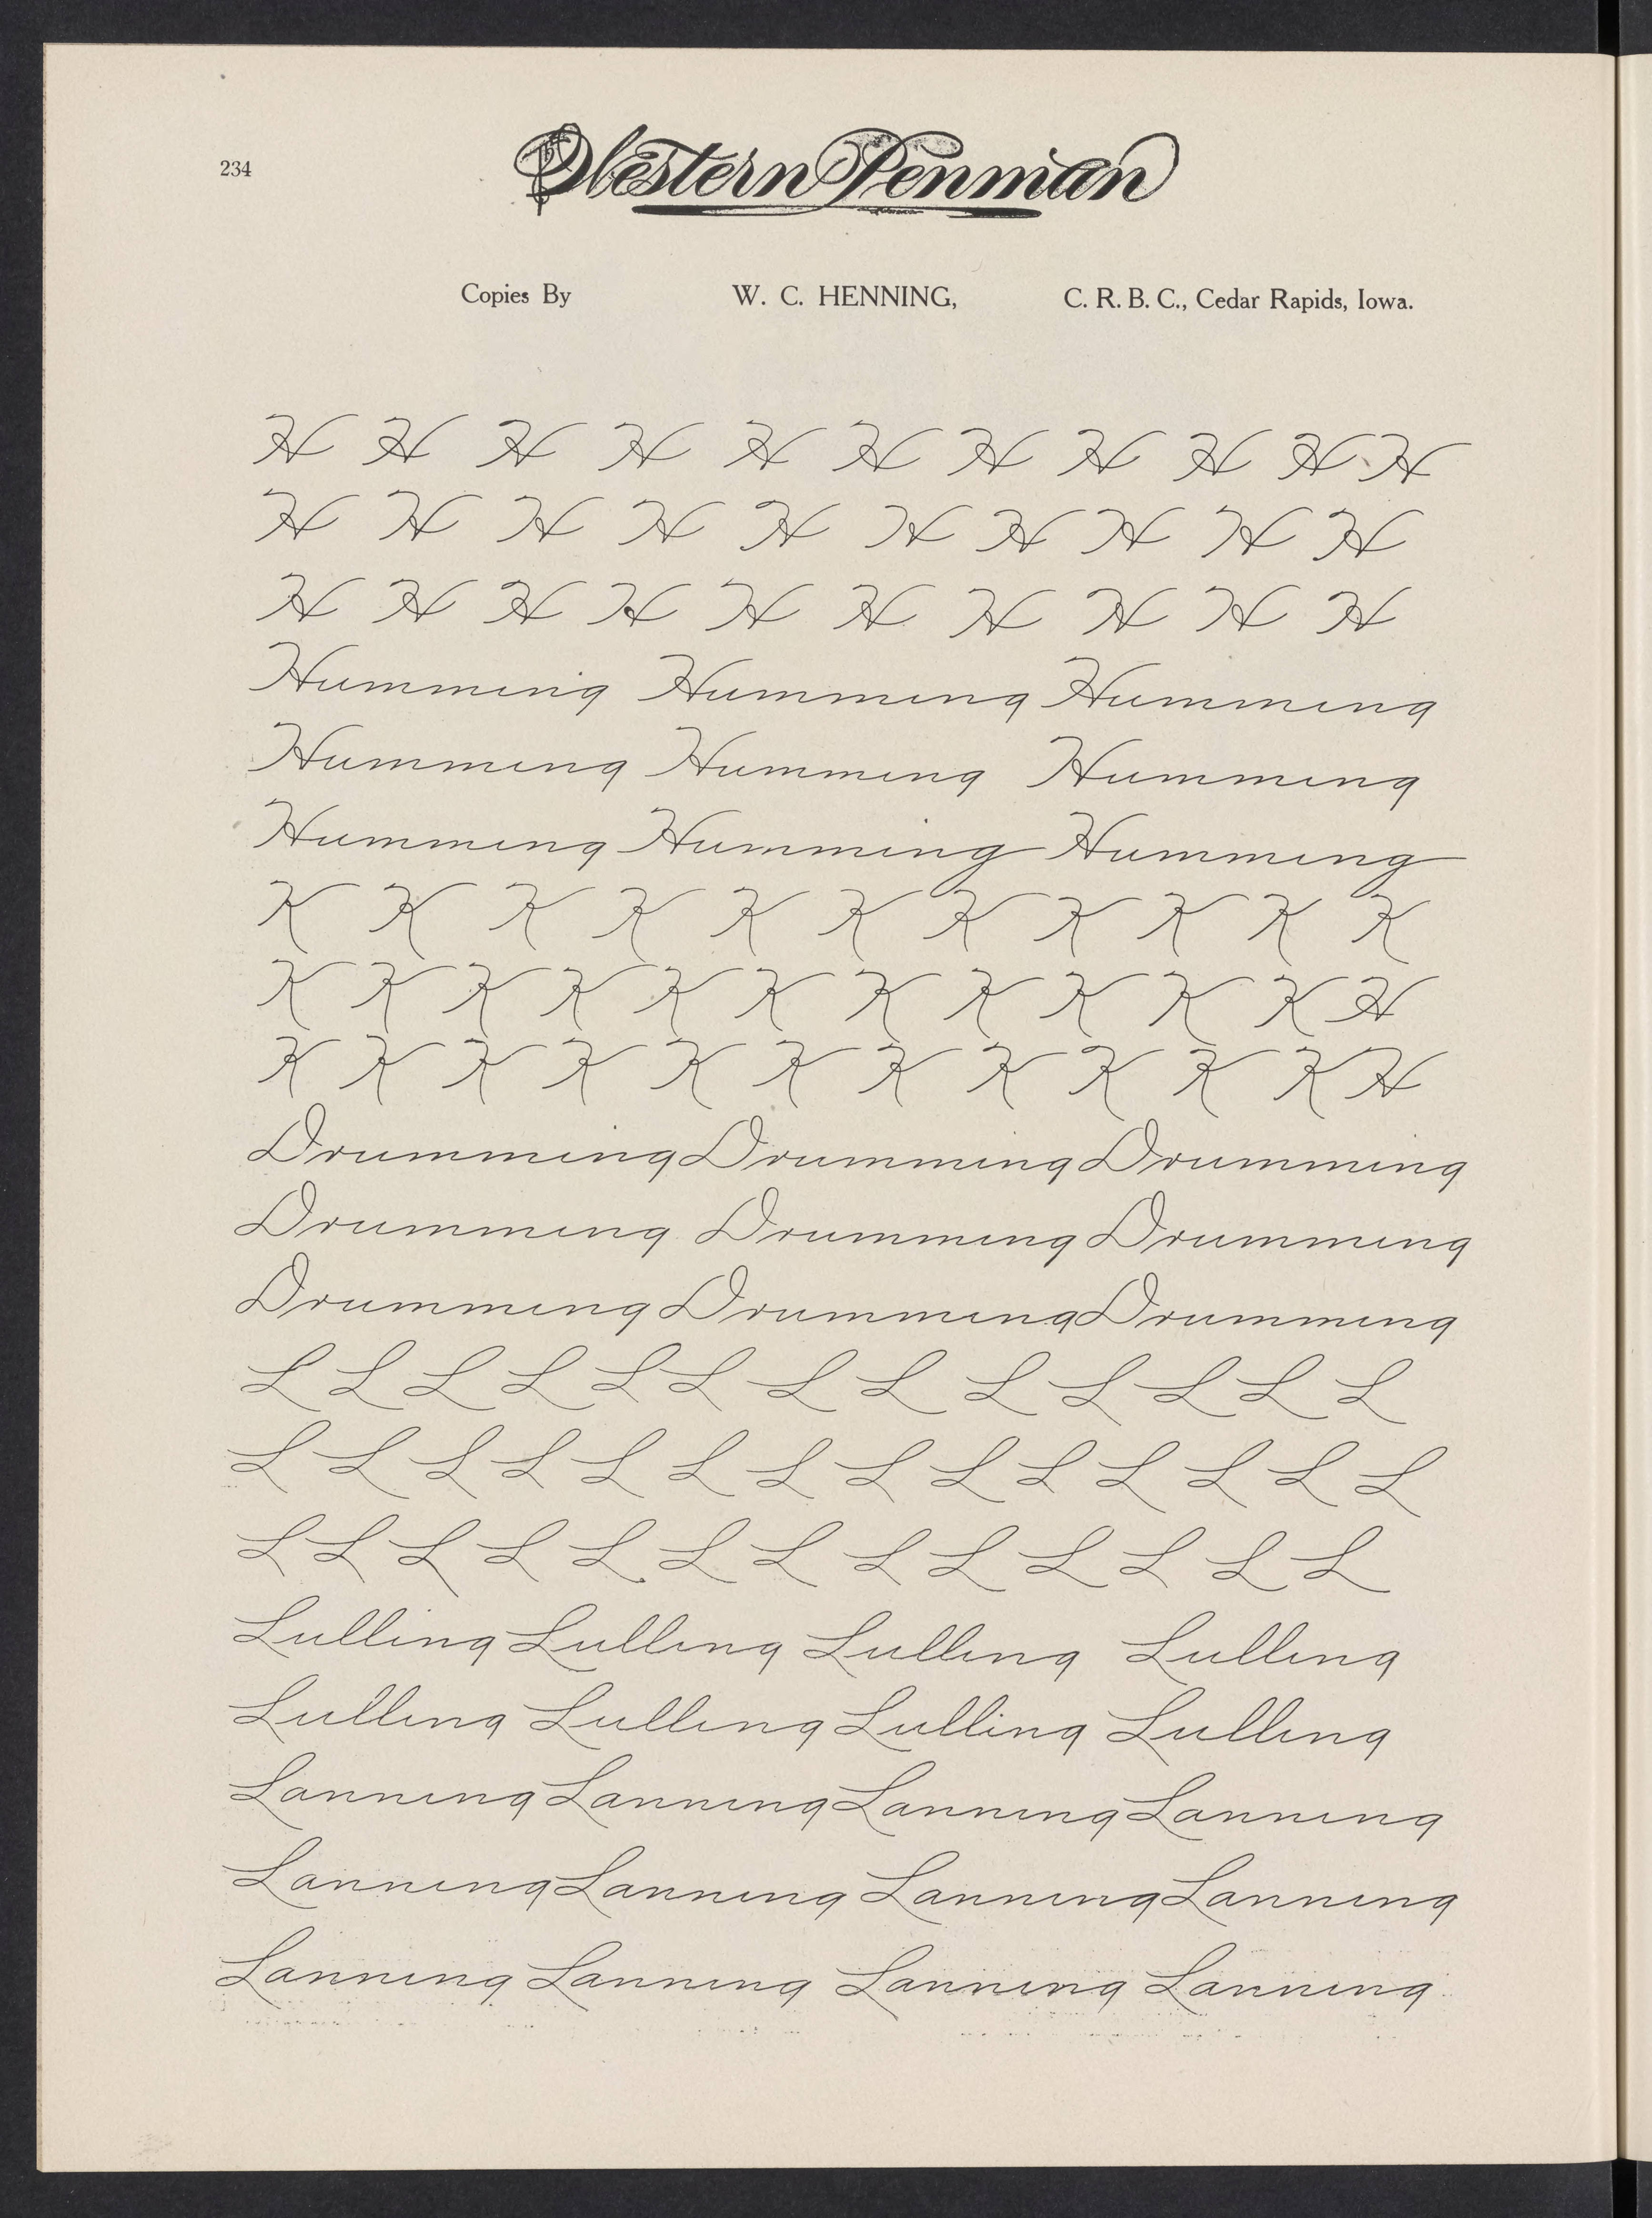 234
Western Penman
Copies By W. C. HENNING, C. R. B. C., Cedar Rapids, Iowa.
H H H H H H H H H H H
H H H H H H H H H H
H H H H H H H H H H
Humming Humming Humming
Humming Humming Humming
Humming Humming Humming
K K K K K K K K K K K
K K K K K K K K K K K H
K K K K K K K K K K K H
Drumming Drumming Drumming
Drumming Drumming Drumming
Drumming Drumming Drumming
L L L L L L L L L L L L L
L L L L L L L L L L L L L L
L L L L L L L L L L L L L
Lulling Lulling Lulling Lulling
Lulling Lulling Lulling Lulling
Lanning Lanning Lanning Lanning
Lanning Lanning Lanning Lanning
Lanning Lanning Lanning Lanning